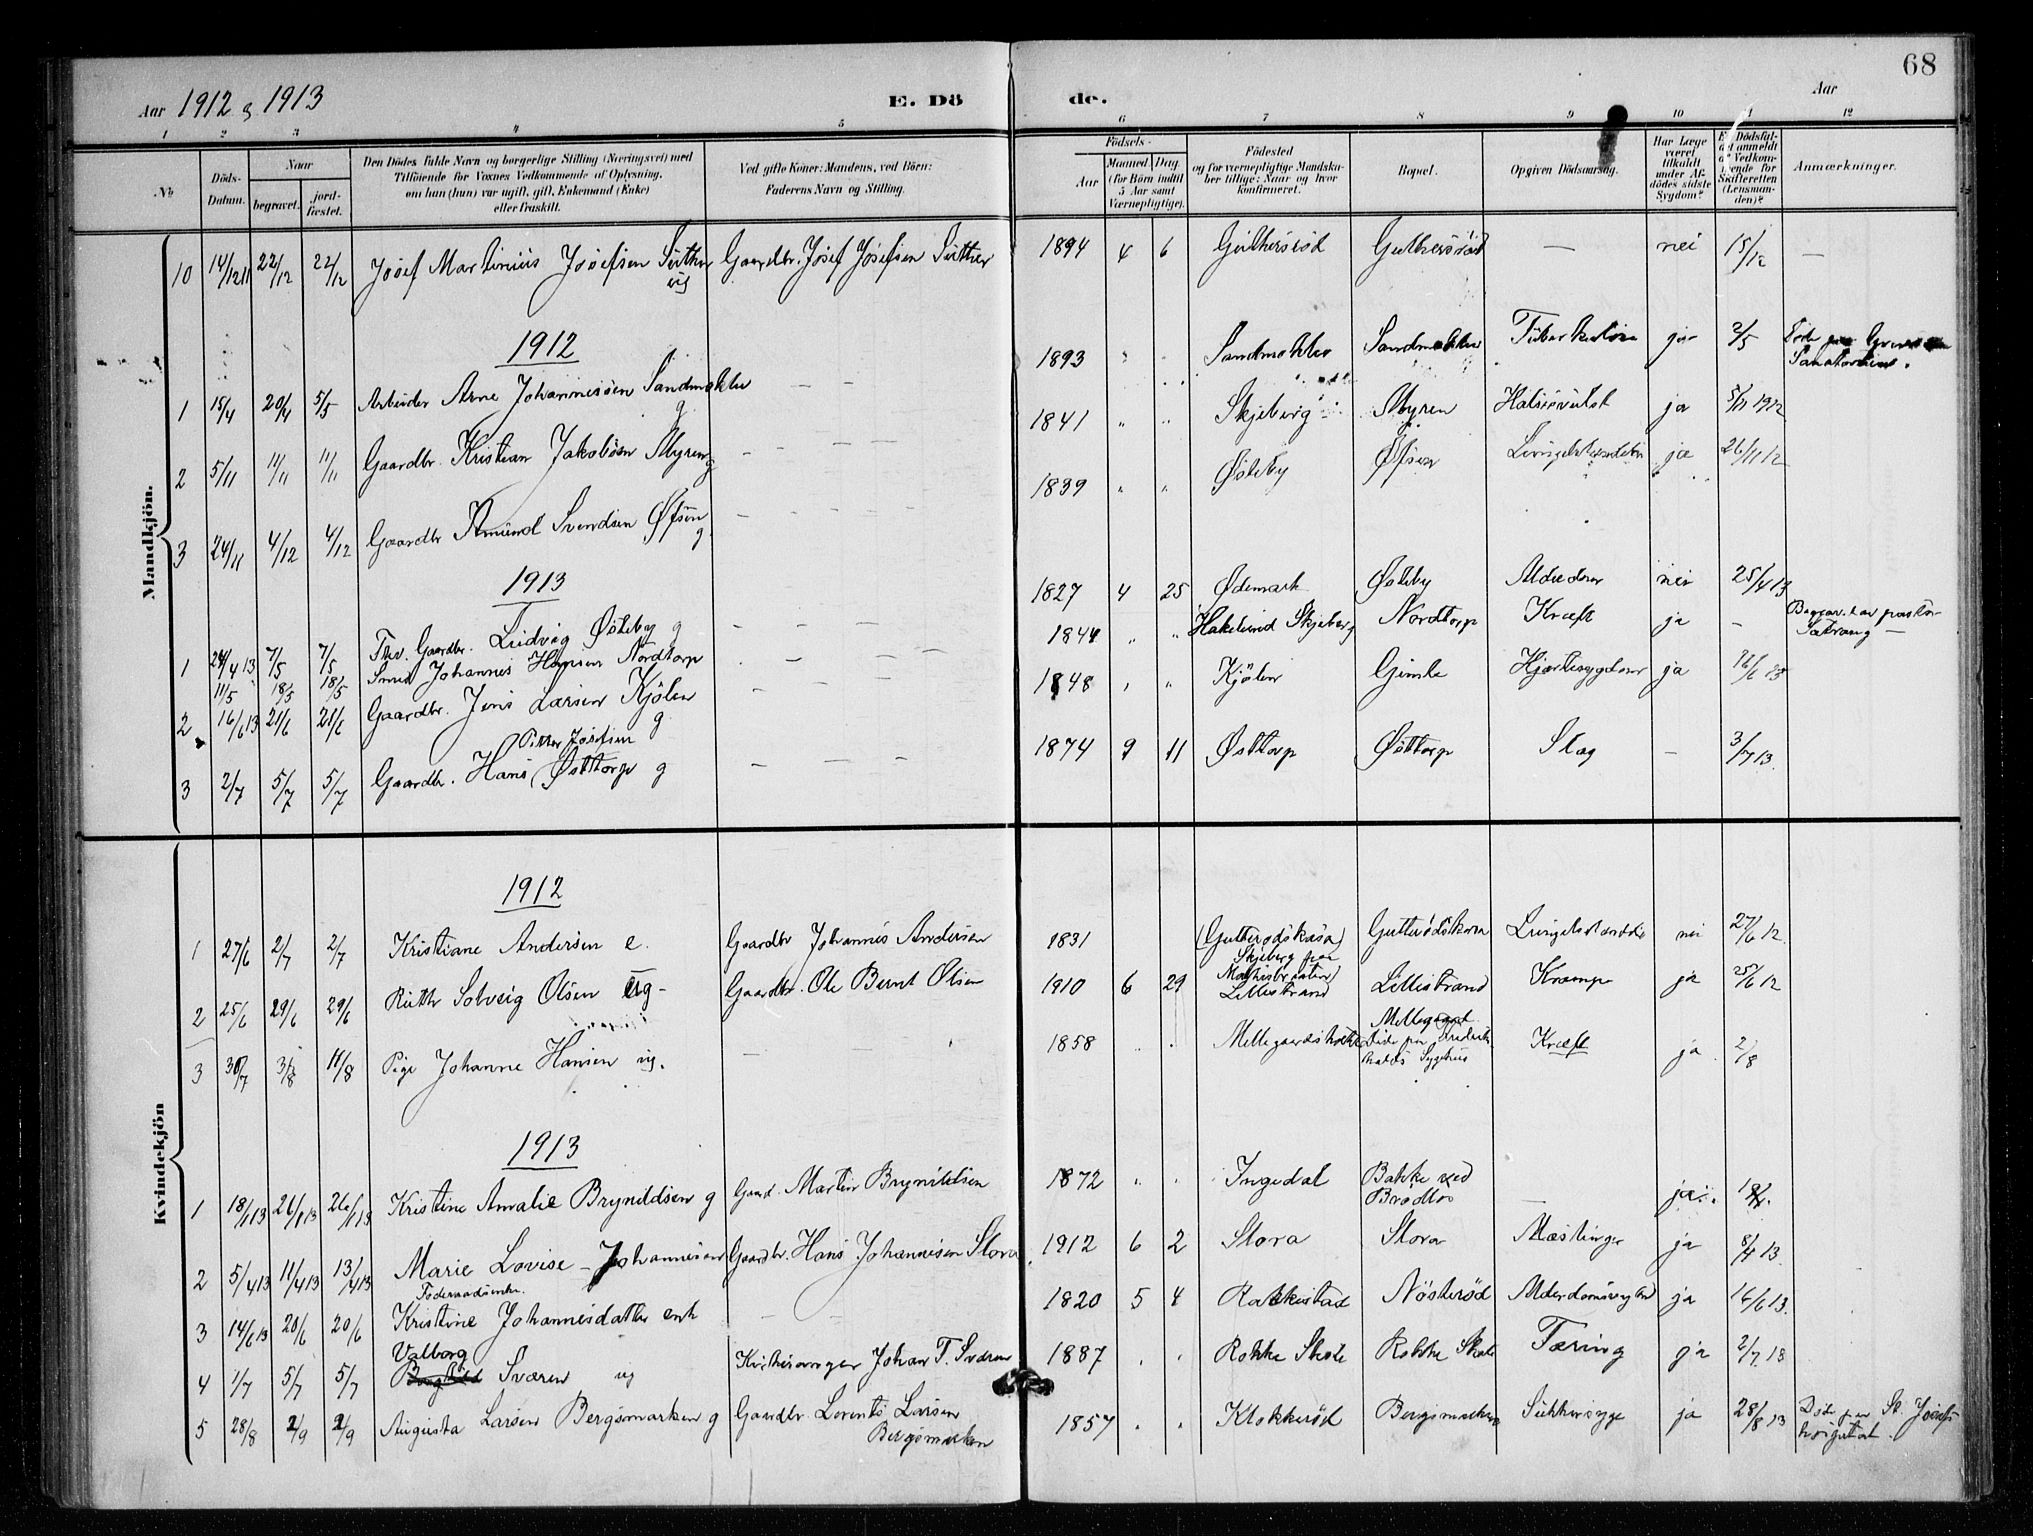 68
Aar 1912 & 1913
E. Dö de.
Aar
1 2 3 4 5 6 7 8 9 10 11 12
No
Döds-Datum.
Naar
begravet.
jord-fæstet.
Den Dödes fulde Navn og borgerlige Stilling (Næringsvei) med
Tilföiende for Voxnes Vedkommende af Oplysning,
om han (hun) var ugift, gift, Enkemand (Enke)
eller fraskilt.
Ved gifte Koner: Mandens, ved Börn:
Faderens Navn og Stilling.
Födsels-
Aar
Maaned Dag
(for Börn indtil
5 Aar samt
Værnepligtige).
Födested
og for værnepligtige Mandska-
ber tillige: Naar og hvor
konfirmeret.
Bopæl.
Opgiven Dödsaarsag.
Har Læge
været
tilkaldt
under Af-
dödes sidste
Sygdom?
Er Dödsfal-
det anmeldt
af Vedkom-
mende for
Skifteretten
(Lensman-
den)?
Anmærkninger.
Mandkjön.
10 14/12 11 22/12 22/12 Josef Martinius Josefsen ug Gaardbr. Josef Josefsen 1894 4 6 Guthersröd Guthersröd — nei 15/12 —
1912
1 15/4 20/4 5/5 Arbeider Arne Johannessen Sandmokler g — — 1893 " " Sandmokler Sandmokler Tuberkulose ja 2/5 Döde paa Sanatorium.
2 5/11 11/11 11/11 Gaardbr. Kristian Jakobsen Myren g — — 1841 " " Skjeberg Myren Halssvulst ja 5/11 1912
3 24/11 4/12 4/12 Gaardbr. Amund Svendsen g — — 1839 " " Östeby ja 26/11 12
1913
1 24/4 13 7/5 7/5 Fhv. Gaardbr. Ludvig Östeby g — — 1827 4 25 Ödemark Östeby Alderdom nei 25/4 13
11/5 18/5 18/5 Smed Johannes Hansen Nordtorp — — 1844 " " Hakelund Skjeberg Nordtorp Kræft ja —
2 16/6 13 21/6 21/6 Gaardbr. Jens Larsen Kjölen g — — 1848 " " Kjölen Gimle Hjertesygdom ja 16/6 13
3 2/7 5/7 5/7 Gaardbr. Hans Petter Josefsen Östtorp g — — — 1874 9 11 Östtorp Östtorp Slag — 3/7 13.
Kvindekjön
1912
1 27/6 2/7 2/7 Kristiane Andersen e. Gaardbr Johannes Andersen 1831 (Gutterödskasa) Skjeberg paa Gutterödskasa nei 27/6 12.
2 25/6 29/6 29/6 Ruth Solveig Olsen ug — Gaardbr. Ole Bernt Olsen 1910 6 29 Lillestrand Lillestrand Krampe ja 25/6 12
3 30/7 3/8 11/8 Pige Johanne Hansen ug. — 1858 " " Mellegaard Döde paa Frederikstads Sygehus Kræft ja 2/8
1913
1 18/1 13 26/1 13 26/1 13 Kristine Amalie Brynildsen g Gaard. Martin Brynildsen 1872 " " Ingedal Bakke ved — ja
2 5/4 13 11/4 13 13/4 13 Marie Lovise Johannesen Gaardbr. Hans Johannesen Stora 1912 6 2 Stora Stora Mæslinger ja 8/4 13.
3 14/6 13 20/6 20/6 Föderaadsenke. Kristine Johannesdatter enk — — 1820 5 4 Rakkestad Nösteröd ja 16/6 13.
4 1/7 5/7 5/7 Valborg Sværen ug Kirkesanger Johan T. Sværen 1887 " " Rokke Skole Rokke Skole Tæring ja 2/7 13
5 28/8 2/9 2/9 Augusta Larsen Bergsmarken g Gaardbr. Lorents Larsen Bergsmarken 1857 " " Klokkeröd Bergsmarken Sukkersyge ja 28/8 13 Döde paa St. Josefs hospital.